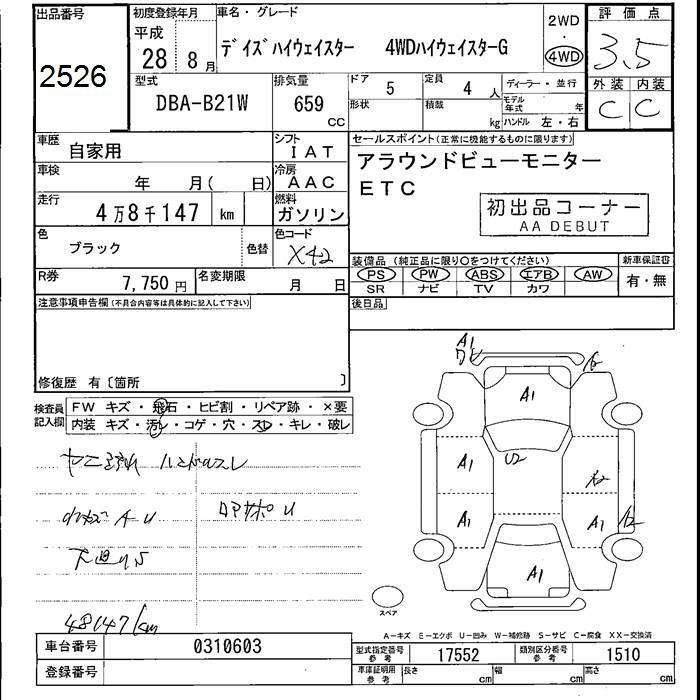 出品番号
2526
初度登録年月
平成
28 8月
車名・グレード
デイズハイウェイスター 4WDハイウェイスターG
2WD
・
4WD
評価点
3.5
外装 内装
C C
型式
DBA-B21W
排気量
659
CC
ドア
5
形状
定員
4 人
積載
kg
ディーラー・並行
モデル年式 年
ハンドル 左・右
車歴
自家用
シフト
IAT
車検
年 月( 日)
冷房
AAC
走行
4万8千147 km
燃料
ガソリン
色
ブラック
色替
色コード
X42
R券
7,750円
名変期限
月 日
セールスポイント(正常に機能するものに限ります)
アラウンドビューモニター
ETC
初出品コーナー
AA DEBUT
装備品(純正品に限り○をつけてください)
PS PW ABS エアB AW
SR ナビ TV カワ
新車保証書
有・無
後日品
注意事項申告欄(不具合内容等は具体的に記入して下さい)
修復歴 有〔箇所 〕
検査員記入欄
FW キズ・飛石・ヒビ割・リペア跡・×要
内装 キズ・汚レ・コゲ・穴・スレ・キレ・破レ
ヤニ汚れ ハンドルスレ
AU
下廻りS
48147km
A1
A1
U2
A1
A2
A1
A1
A2
A1
スペア
A-キズ E-エクボ U-凹み W-補修跡 S-サビ C-腐食 XX-交換済
車台番号
0310603
登録番号
型式指定番号
参考
17552
類別区分番号
参考
1510
車庫証明用
参考
長さ cm
幅 cm
高さ cm